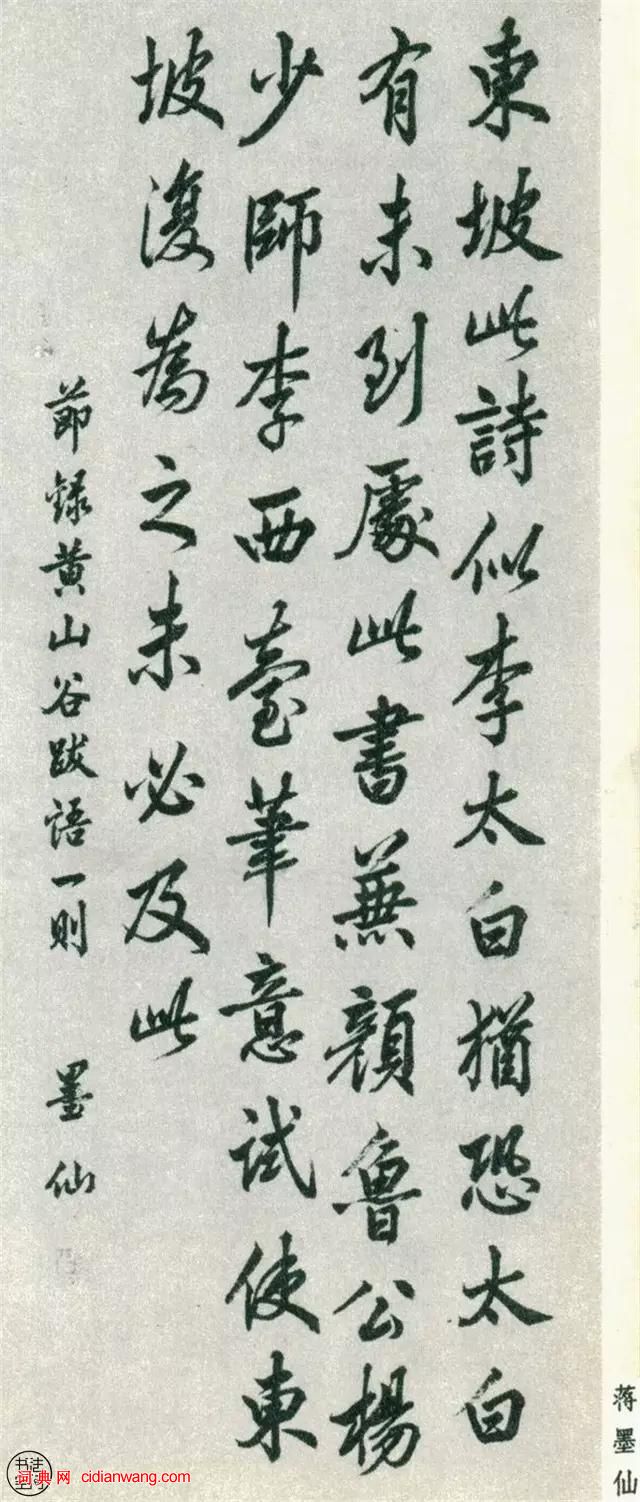 東坡此詩似李太白猶恐太白
有未到處此書兼顏魯公楊
少師李西臺筆意試使東
坡復為之未必及此
節錄黃山谷跋語一則 墨仙
蒋墨仙
词典网 cidianwang.com